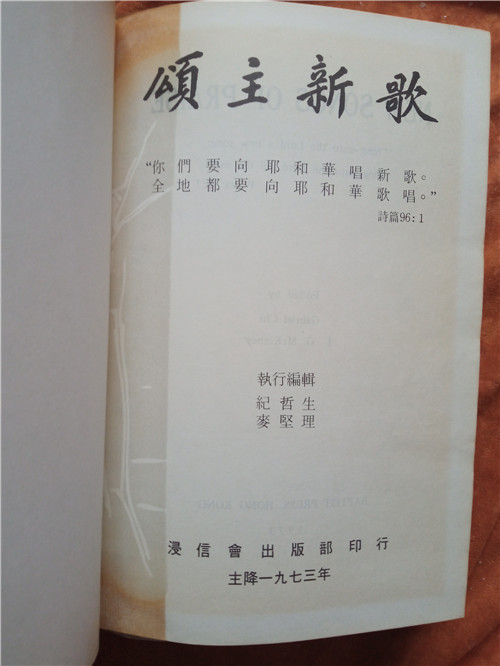 頌主新歌
“你們要向耶和華唱新歌。
全地都要向耶和華歌唱。”
詩篇96:1
執行編輯
紀哲生
麥堅理
浸信會出版部印行
主降一九七三年